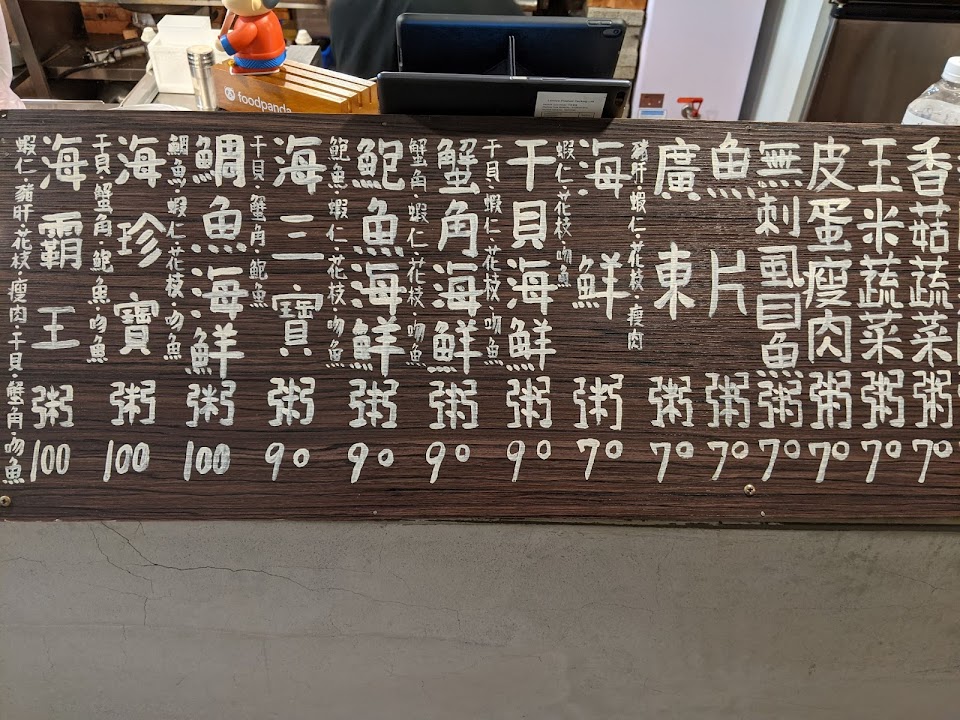 foodpanda
香菇蔬菜粥 70
玉米蔬菜粥 70
皮蛋瘦肉粥 70
無刺虱目魚粥 70
魚片粥 70
廣東粥 70
豬肝.蝦仁.花枝.瘦肉
海鮮粥 70
蝦仁.花枝.吻魚
干貝海鮮粥 90
干貝.蝦仁.花枝.吻魚
蟹角海鮮粥 90
蟹角.蝦仁.花枝.吻魚
鮑魚海鮮粥 90
鮑魚.蝦仁.花枝.吻魚
海三寶粥 90
干貝.蟹角.鮑魚
鯛魚海鮮粥 100
鯛魚.蝦仁.花枝.吻魚
海珍寶粥 100
干貝.蟹角.鮑魚.吻魚
海霸王粥 100
蝦仁.豬肝.花枝.瘦肉.干貝.蟹角.吻魚